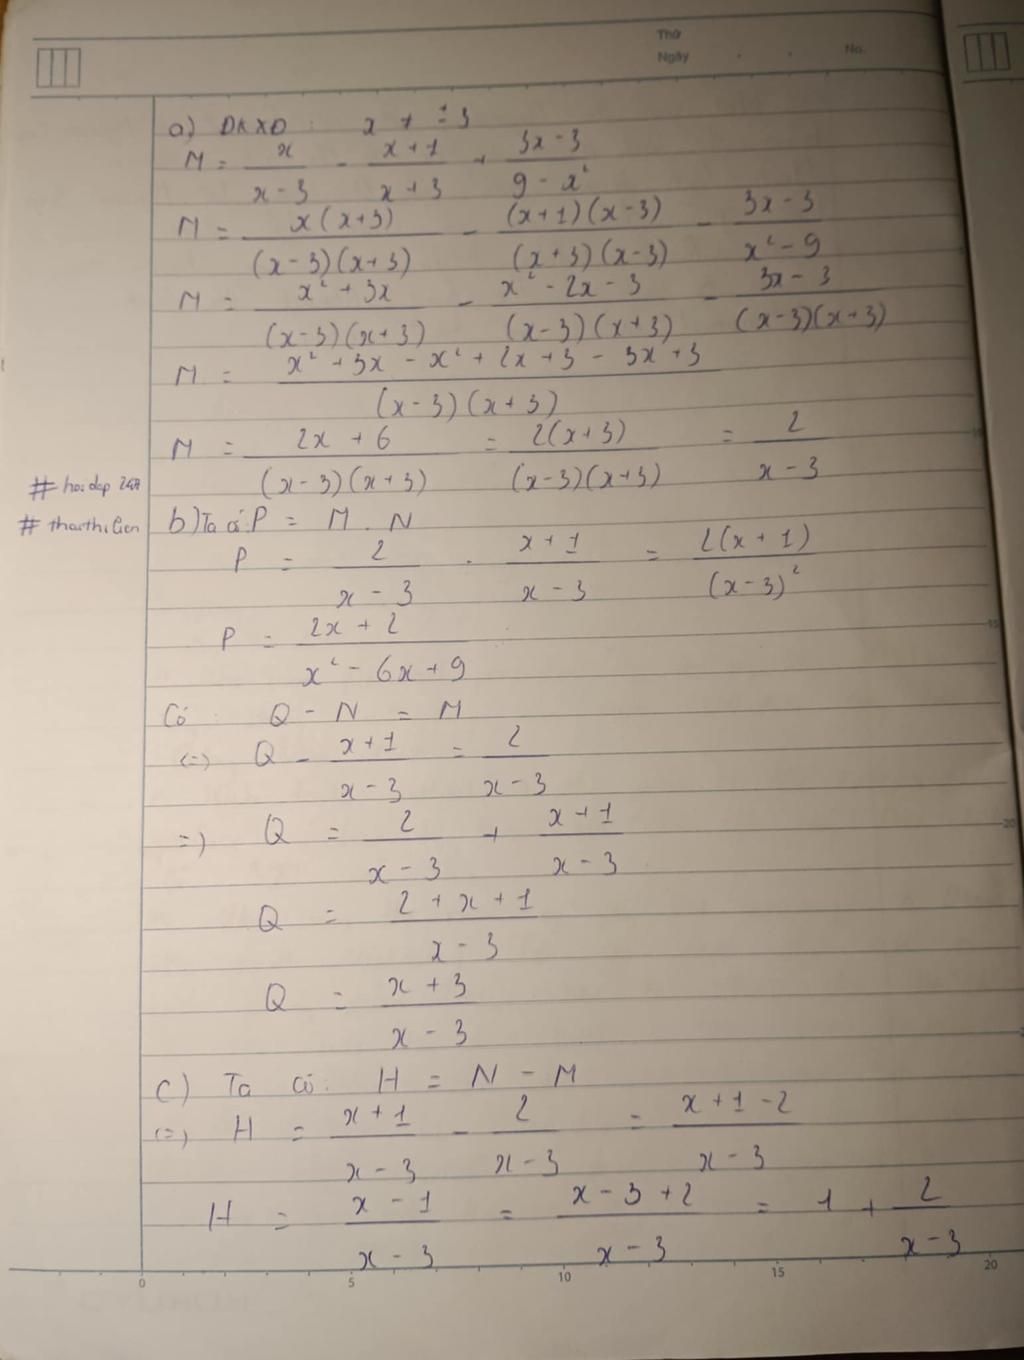 Thứ
Ngày . . No.
a) ĐKXĐ : x ≠ ±3
M = x/(x - 3) - (x + 1)/(x + 3) + (3x - 3)/(9 - x²)
M = x(x+3)/((x-3)(x+3)) - (x+1)(x-3)/((x+3)(x-3)) - (3x-3)/(x²-9)
M = (x² + 3x)/((x-3)(x+3)) - (x² - 2x - 3)/((x-3)(x+3)) - (3x - 3)/((x-3)(x+3))
M = (x² + 3x - x² + 2x + 3 - 3x + 3)/((x-3)(x+3))
M = (2x + 6)/((x-3)(x+3)) = 2(x+3)/((x-3)(x+3)) = 2/(x-3)
# hoidap 247
# thaithilien
b) Ta có P = M . N
P = 2/(x - 3) . (x + 1)/(x - 3) = 2(x + 1)/(x-3)²
P = (2x + 2)/(x² - 6x + 9)
Có : Q - N = M
(=) Q - (x+1)/(x-3) = 2/(x-3)
=) Q = 2/(x-3) + (x+1)/(x-3)
Q = (2 + x + 1)/(x - 3)
Q = (x + 3)/(x - 3)
c) Ta có: H = N - M
(=) H = (x+1)/(x-3) - 2/(x-3) = (x+1-2)/(x-3)
H = (x-1)/(x-3) = (x-3+2)/(x-3) = 1 + 2/(x-3)
0 5 10 15 20